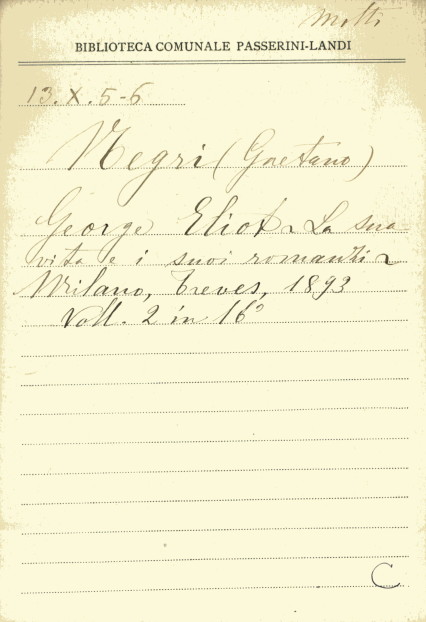 Motti
BIBLIOTECA COMUNALE PASSERINI-LANDI
13. X. 5-6
Negri (Gaetano)
George Eliot ~ La sua
vita e i suoi romanzi ~
Milano, Treves, 1893
Voll. 2 in 16°
C